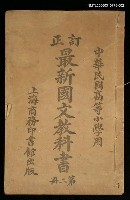 中華民國高等小學用
訂正
最新國文教科書
第二冊
上海商務印書館出版